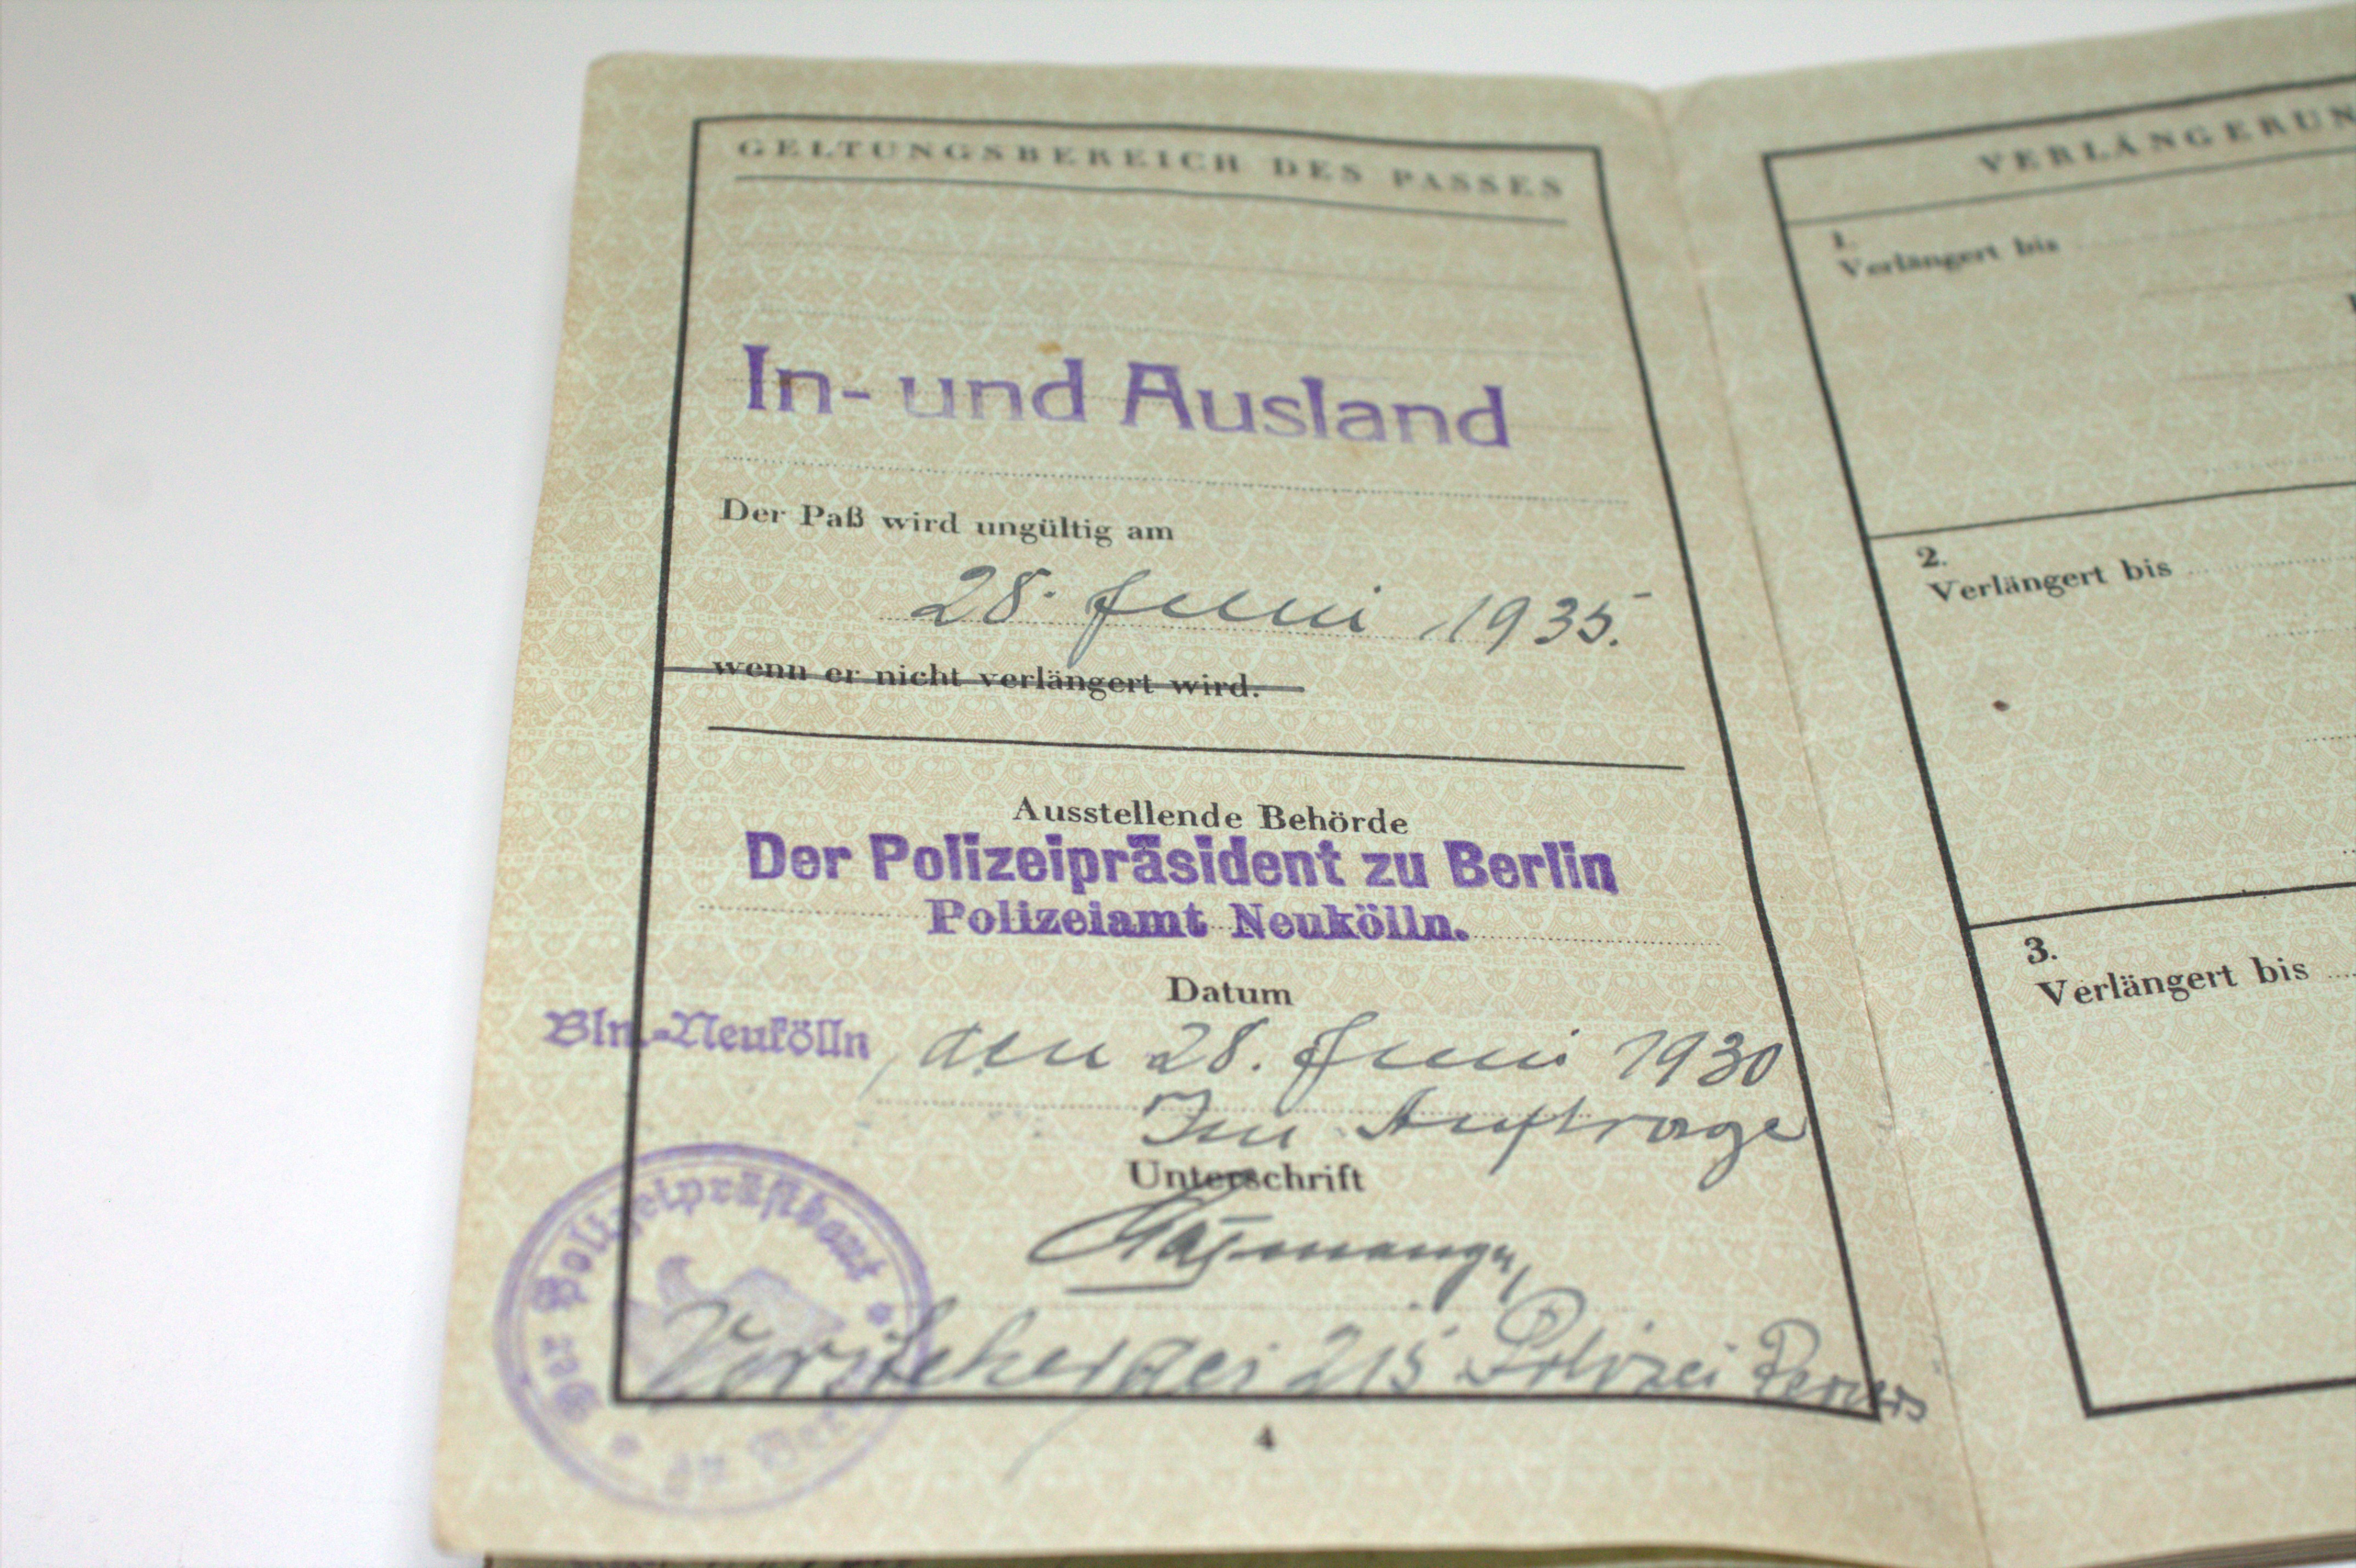 GELTUNGSBEREICH DES PASSES
In- und Ausland
Der Paß wird ungültig am
28. Juni 1935.
wenn er nicht verlängert wird.
Ausstellende Behörde
Der Polizeipräsident zu Berlin
Polizeiamt Neukölln.
Datum
Bln.-Neukölln, den 28. Juni 1930
Im Auftrage
Unterschrift
Vorsteher des 215 Polizei Reviers
Der Polizeipräsident
zu
4
1.
Verlängert bis
2.
Verlängert bis
3.
Verlängert bis